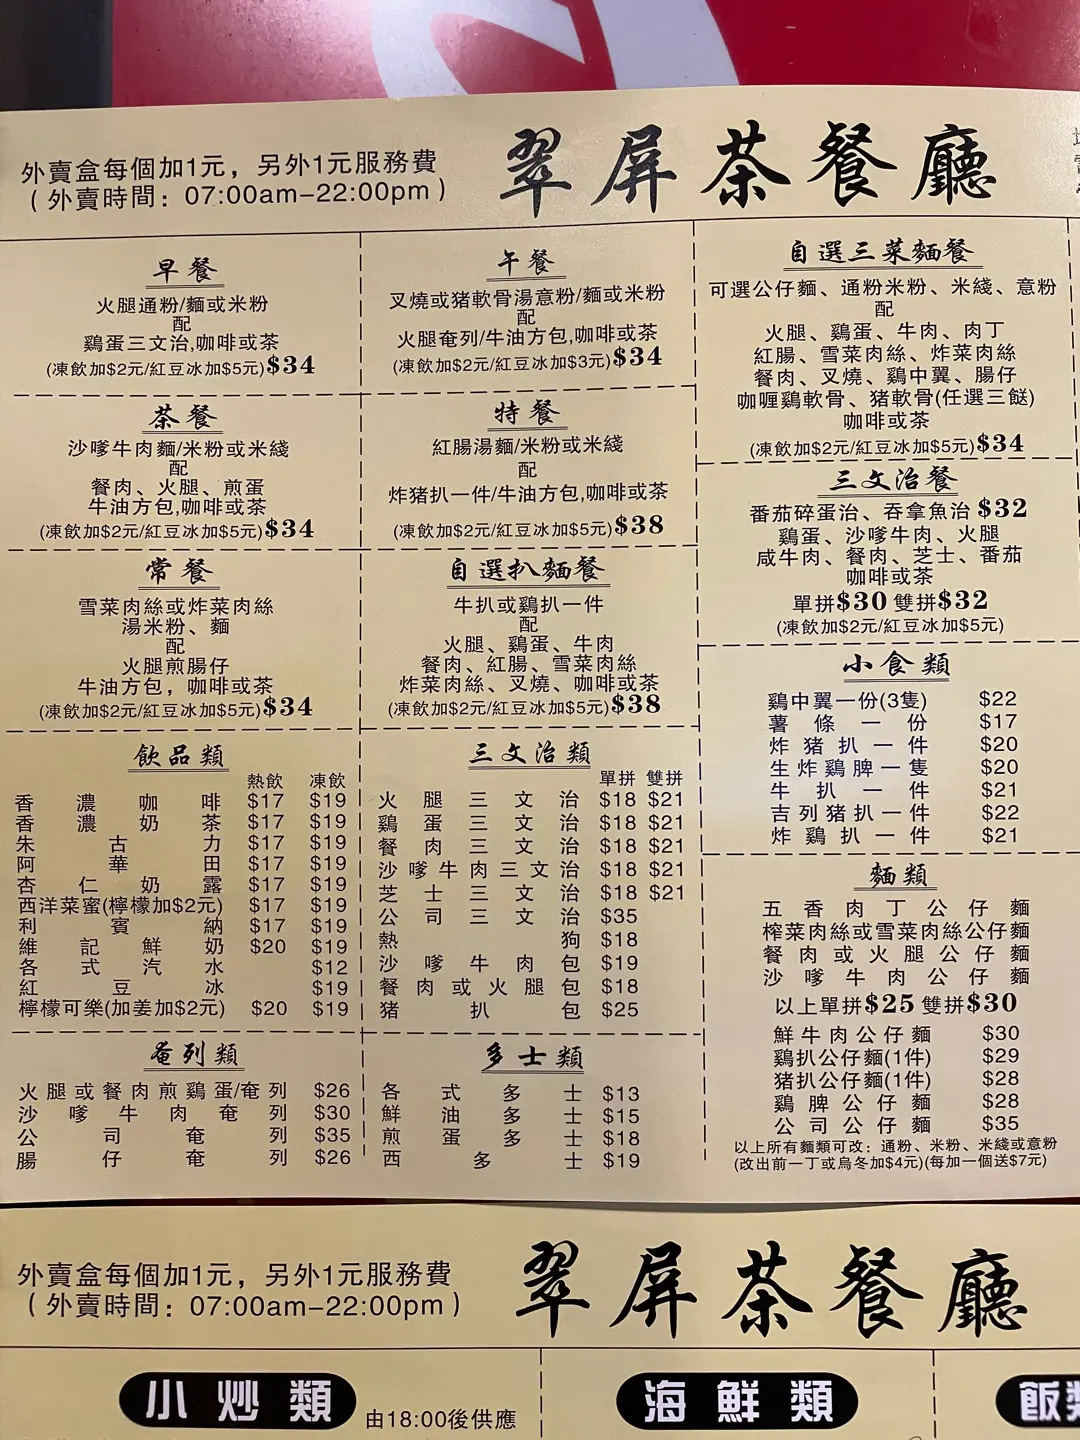 外賣盒每個加1元，另外1元服務費
（外賣時間：07:00am–22:00pm）
翠屏茶餐廳
早餐
火腿通粉/麵或米粉
配
鷄蛋三文治,咖啡或茶
(凍飲加$2元/紅豆冰加$5元)$34
茶餐
沙嗲牛肉麵/米粉或米綫
配
餐肉、火腿、煎蛋
牛油方包,咖啡或茶
(凍飲加$2元/紅豆冰加$5元)$34
常餐
雪菜肉絲或炸菜肉絲
湯米粉、麵
配
火腿煎腸仔
牛油方包，咖啡或茶
(凍飲加$2元/紅豆冰加$5元)$34
午餐
叉燒或猪軟骨湯意粉/麵或米粉
配
火腿奄列/牛油方包,咖啡或茶
(凍飲加$2元/紅豆冰加$3元)$34
特餐
紅腸湯麵/米粉或米綫
配
炸猪扒一件/牛油方包,咖啡或茶
(凍飲加$2元/紅豆冰加$5元)$38
自選扒麵餐
牛扒或鷄扒一件
配
火腿、鷄蛋、牛肉
餐肉、紅腸、雪菜肉絲
炸菜肉絲、叉燒、咖啡或茶
(凍飲加$2元/紅豆冰加$5元)$38
自選三菜麵餐
可選公仔麵、通粉米粉、米綫、意粉
配
火腿、鷄蛋、牛肉、肉丁
紅腸、雪菜肉絲、炸菜肉絲
餐肉、叉燒、鷄中翼、腸仔
咖喱鷄軟骨、猪軟骨(任選三餸)
咖啡或茶
(凍飲加$2元/紅豆冰加$5元)$34
三文治餐
番茄碎蛋治、吞拿魚治 $32
鷄蛋、沙嗲牛肉、火腿
咸牛肉、餐肉、芝士、番茄
咖啡或茶
單拼$30 雙拼$32
(凍飲加$2元/紅豆冰加$5元)
小食類
鷄中翼一份(3隻) $22
薯條一份 $17
炸猪扒一件 $20
生炸鷄髀一隻 $20
牛扒一件 $21
吉列猪扒一件 $22
炸鷄扒一件 $21
飲品類
熱飲 凍飲
香濃咖啡 $17 $19
香濃奶茶 $17 $19
朱古力 $17 $19
阿華田 $17 $19
杏仁奶露 $17 $19
西洋菜蜜(檸檬加$2元) $17 $19
利賓納 $17 $19
維記鮮奶 $20 $19
各式汽水 $12
紅豆冰 $19
檸檬可樂(加姜加$2元) $20 $19
三文治類
單拼 雙拼
火腿三文治 $18 $21
鷄蛋三文治 $18 $21
餐肉三文治 $18 $21
沙嗲牛肉三文治 $18 $21
芝士三文治 $18 $21
公司三文治 $35
熱狗 $18
沙嗲牛肉包 $19
餐肉或火腿包 $18
猪扒包 $25
麵類
五香肉丁公仔麵
榨菜肉絲或雪菜肉絲公仔麵
餐肉或火腿公仔麵
沙嗲牛肉公仔麵
以上單拼$25 雙拼$30
鮮牛肉公仔麵 $30
鷄扒公仔麵(1件) $29
猪扒公仔麵(1件) $28
鷄髀公仔麵 $28
公司公仔麵 $35
以上所有麵類可改：通粉、米粉、米綫或意粉
(改出前一丁或烏冬加$4元)(每加一個送$7元)
奄列類
火腿或餐肉煎鷄蛋/奄列 $26
沙嗲牛肉奄列 $30
公司奄列 $35
腸仔奄列 $26
多士類
各式多士 $13
鮮油多士 $15
煎蛋多士 $18
西多士 $19
外賣盒每個加1元，另外1元服務費
（外賣時間：07:00am–22:00pm）
翠屏茶餐廳
小炒類
由18:00後供應
海鮮類
飯